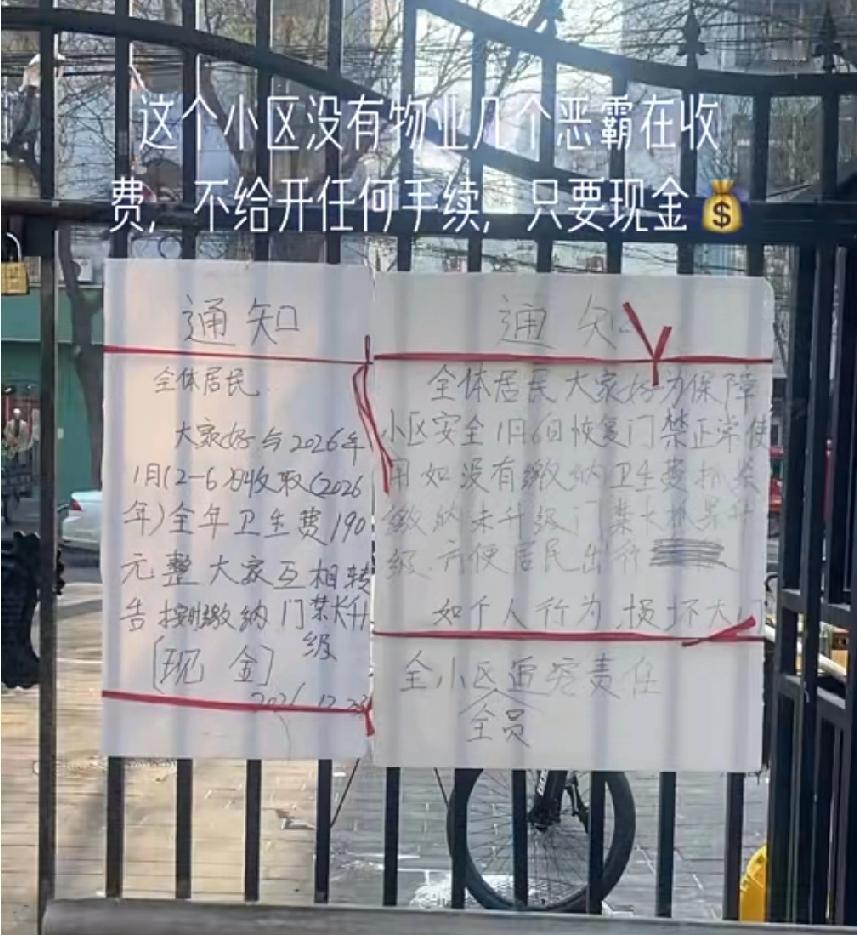 这个小区没有物业几个恶霸在收
费，不给开任何手续，只要现金💰
通知
全体居民
大家好与2026年
1月(2-6)日收取(2026
年)全年卫生费190
元整大家互相转
告按时缴纳门禁卡升
级
[现金]
通知
全体居民大家好为保障
小区安全1月6日恢复门禁正常使
用如没有缴纳卫生费抓紧
缴纳未升级门禁卡抓紧升
级.方便居民出行
如个人行为.损坏大门
全小区追究责任
全员